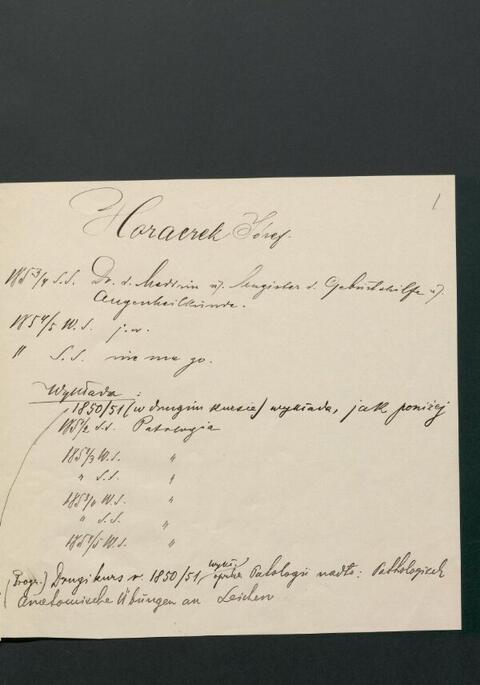 1
Horaczek Józef.
1853/4 S.S. Dr. d. Medizin u. Magister d. Geburtshilfe u.
Augenheilkunde.
1854/5 W.S. j.w.
" S.S. nie ma go.
Wykłada:
1850/51 (w drugim kursie) wykłada, jak poniżej
1851/2 S.S. Patologia
1852/3 W.S. "
" S.S. "
1853/4 W.S. "
" S.S. "
1854/5 W.S. "
Progr.) Drugi kurs r. 1850/51 Patologii nadto: Pathologisch
Anatomische Übungen an Leichen